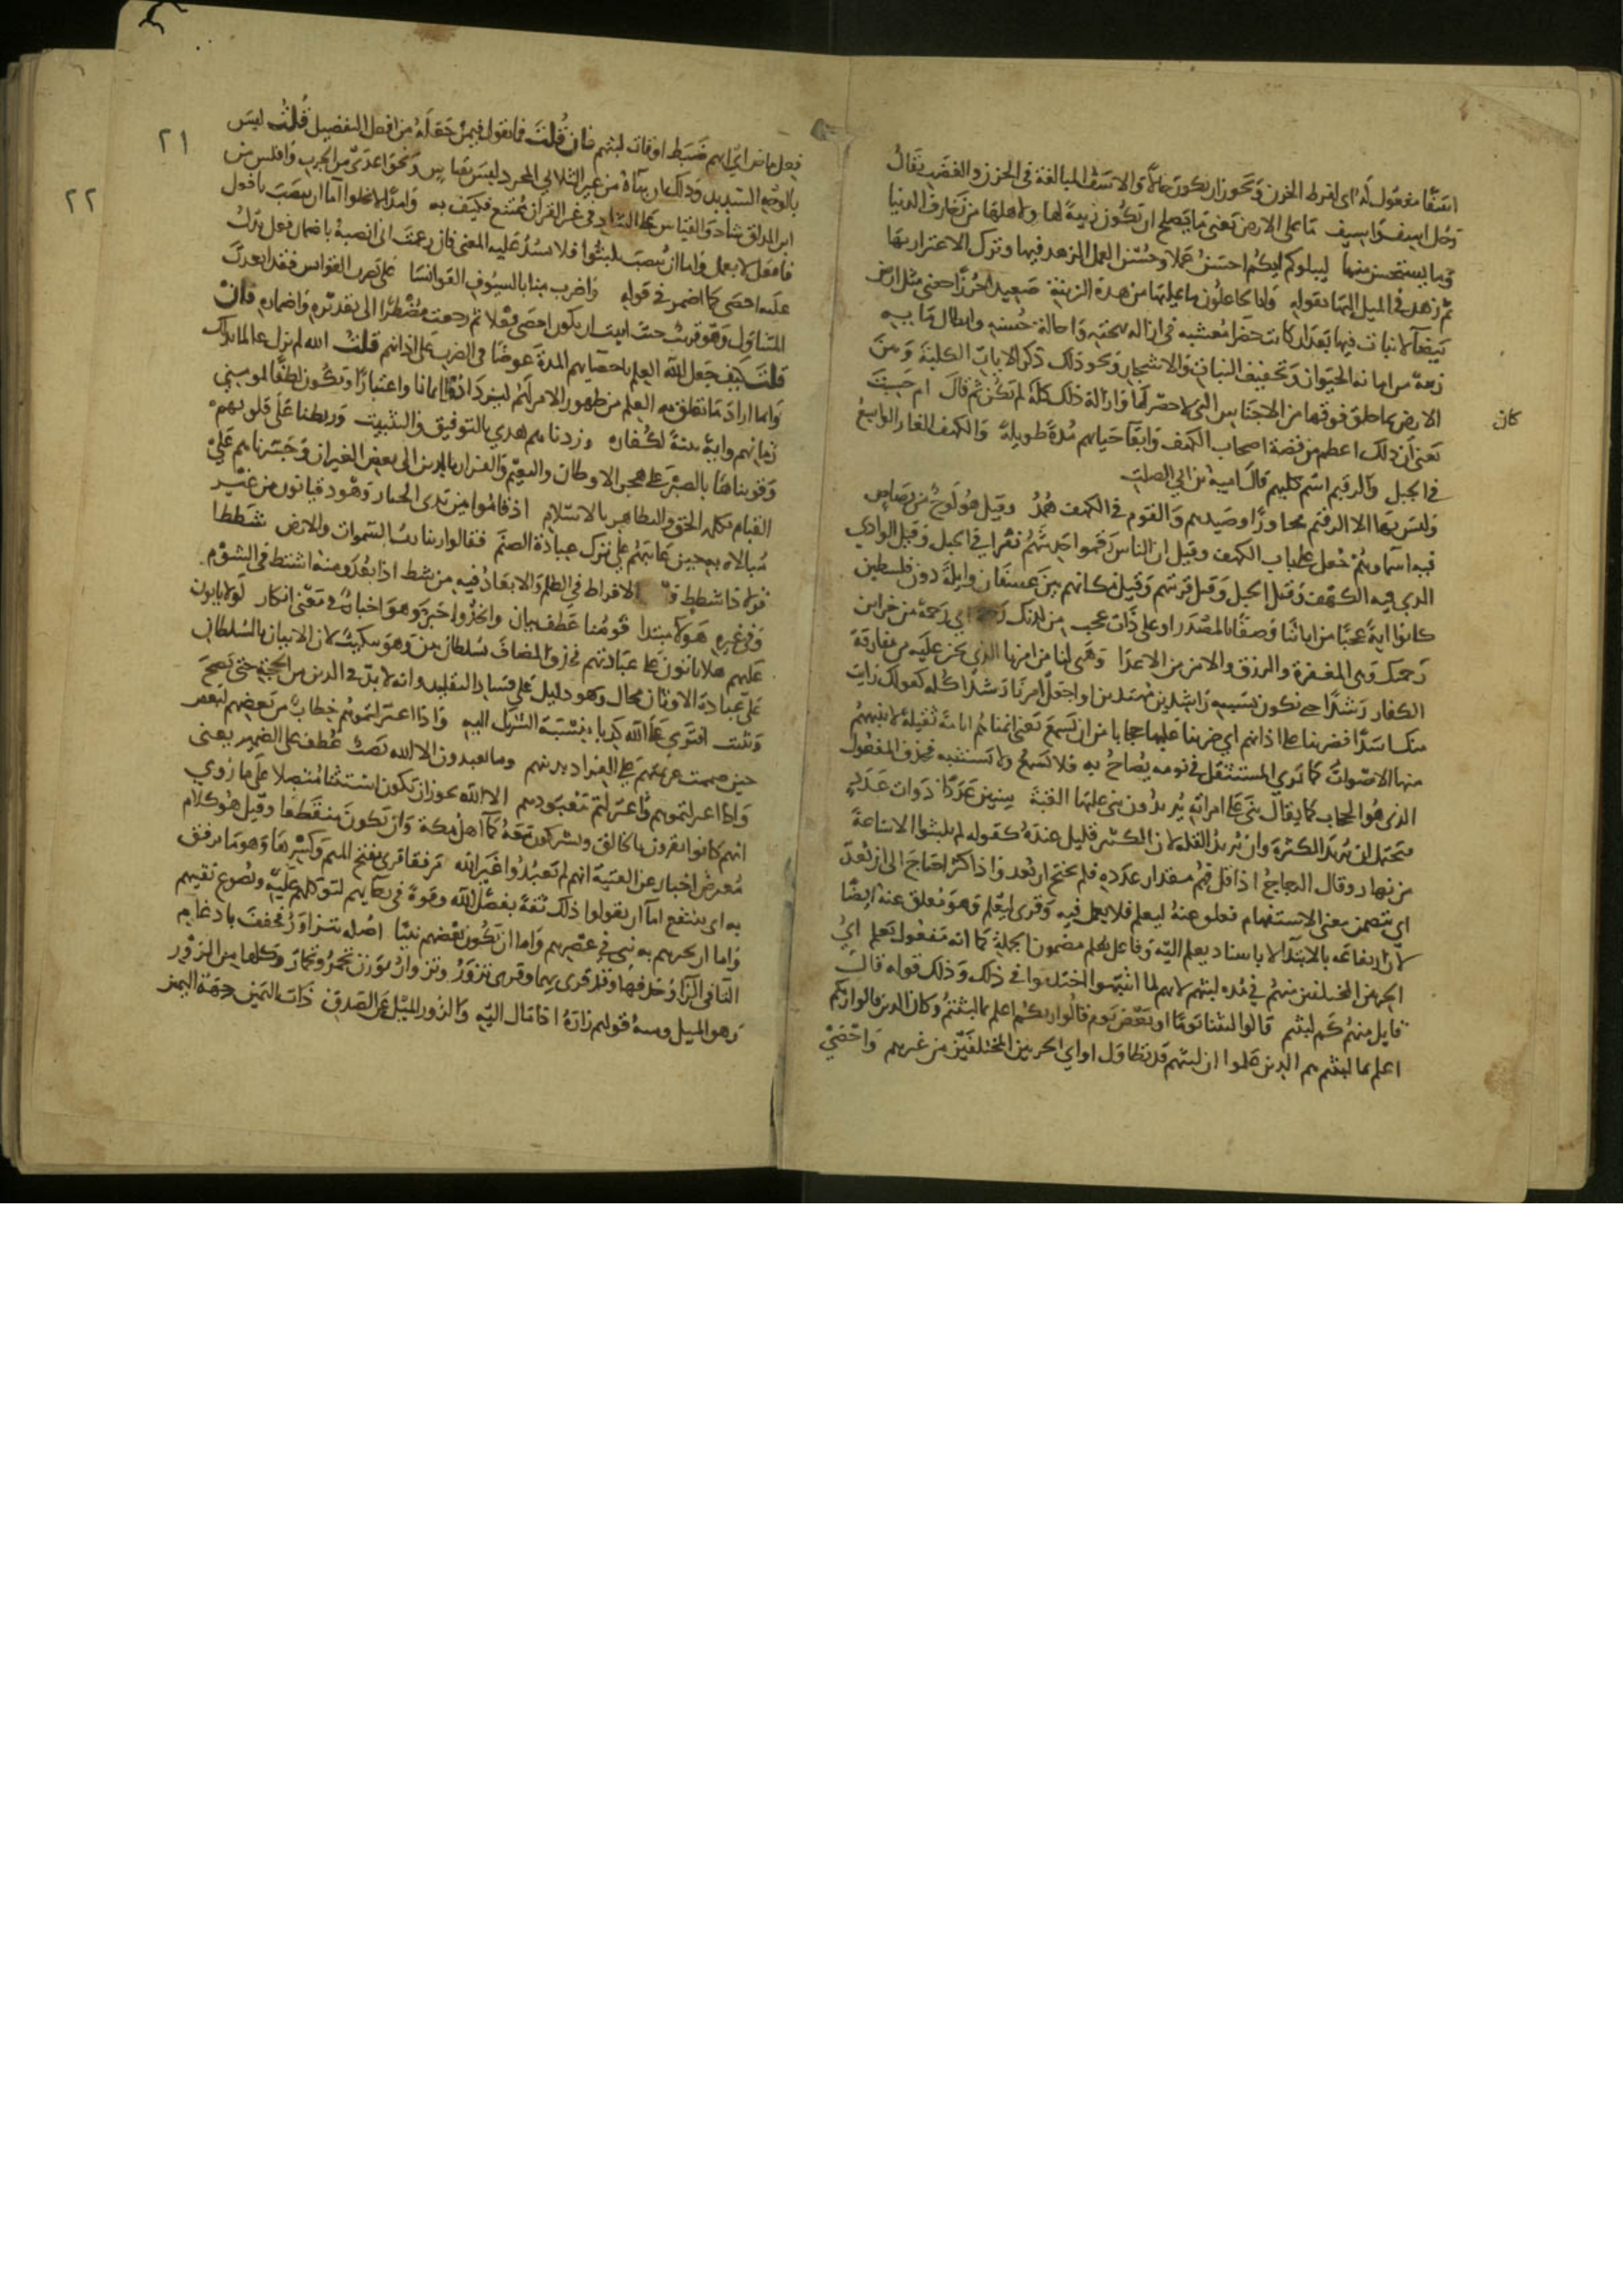 اسفًا مفعول له اى لفرط الحزن وَيجوز ان يكون حالاً والاسَف المبالغة فى الحزن والغضب يقالُ
رَجل اسِف وَاسيف مَا على الارض يعنى مَا يَصلح ان يكُون زينةً لها ولاهلهَا من زخارف الدنيا
وَما يستحسن منها ليبلوكم ايكم احسَنُ عَملا وحُسْن العمل الزهد فيها وترك الاغترار بهَا
ثم زهد فى الميل اليهَا بقوله وَانا لجاعلُون ما عليهَا من هذه الزينة صَعيدا جُرزًا يعنى مثل ارض
بَيضآ لا نبات فيها بَعد ان كانت خضرآ مُعشبه فى ازالة بهجته وَاماطة حُسنه وابطال مَا به
زينة من اماتة الحيَوان وَتجفيف النبات والاشجار وَنحو ذلك ذكر الايات الكلية وَمن
الارض مما خلق فوقها من الاجناس التى لا حصر لهَا وازالة ذلك كله كان لم تكن ثم قال ام حَسِبتَ
يَعنى ان ذلك اعظم من قصة اصحاب الكهف وَابقآ حَياتهم مُدةً طويلةً وَالكهف الغار الواسِعُ
فى الجبل وَالرقيم اسم كلبهم قال اميّة بن ابى الصلت
وَليسَ بهَا الا الرقيم مجاورًا وصيدهم وَالقوم فى الكهف هُمَّدُ وقيل هُوَ لَوحٌ من رَصاص
فيه اسماوهُمْ جُعل على باب الكهف وقيل ان الناس رقموا حديثهُم نقرا فى الجبل وَقيل الوادى
الذي فيه الكهف وَقيل الجبل وَقيل قريتهم وَقيل مكانهم بين غضبان وايلةَ دون فلسطين
كانوا ايةً عجبًا من اياتنا وَصفًا بالمصْدَر او على ذَات عجب من لدنك رحمة اي رَحمة من خزاين
رَحمتك وَهى المغفرة والرزق والامن من الاعدا وَهَيى لنا من امرنا الذي نحن عليه من مفارقة
الكفار رَشدًا حى نكون بسببه رَاشدين مهتدين او اجعل امرنَا رَشدًا كله كقولك رَايتُ
منك اسَدًا فضربنا على اذانهم اي ضربنا عَليها حجابا من ان تَسمعَ يَعنى انمناهُم انامةً ثقيلةً لا تنبههُم
منها الاصْواتُ كما تَرى المستثقل فى نومه يُصاحُ به فلا يَسْمعُ ولا يَستنبه فحذف المفعُول
الذى هُو الحجاب كما يقالُ بنى عَلى امراته يُريدُون بنى عليهَا القبة سِنِينَ عَدَدًا ذوات عَدَدٍ
فيَحتمل ان يُريدَ الكثرة وان يُريدُ القلة لان الكثير قليل عندهُ كقوله لم يلبثوا الا سَاعةً
من نهار وقال الزجاجُ اذا قل فهم مقدار عدَده فلم يحتج ان يُعد واذا كثر احتاجَ الى ان يُعدّ
اي يتضمن معنى الاستفهام فعلو عنهُ ليعلم فلا يعمل فيه وَقرى ليُعْلم وَهوَ مُعلق عنهُ ايضًا
لانّ ارتفاعَه بالابتدآ لا باسناد يعلم اليّه وَفاعل يُعلم مضمون الجملة كما انه مَفعُول يَعلم ايُّ
الحزبين المختلفين منهُم فى مُده لبثهم لانهم لما انتبهوا اختلفوا فى ذلك وَذلك قوله قالَ
قايل منهُم كَم لبثتم قالوا لبثنا يَومًا او بَعْض يَوم قالُوا ربكُم اعلم بما لبثتُمُ وكان الذين قالوا ربكم
اعلم بما لبثتم هم الذين عَلموا ان لبثهم قد تطاوَل او اي الحزبين المختلفين من غيرهم وَاحْصٰى
كان
٢١
٢٢
فِعل ماض اي ايّهم ضبَط اوقات لبثهم فان قُلتَ فما تقول فيمنْ جَعَلهُ من افعل التفضيل قُلتُ ليسَ
بالوجه السديد وَذلك ان بنآهُ من غير الثلاثي المجرد ليسَ بقياس وَنحوَ اعدى من الجرب وَافلس من
ابن المذلق شاذ وَالقياس على الشاذ فى غير القرآن مُمتنع فكيف به وَامدًا لا يخلوا اما ان ينصَب بافعل
فافعل لا يعمل وَاما ان يُنصبَ بلبثُوا فلا يسُدُّ عَليه المعنى فان زعمتَ انى انصبهُ باضمار فعل يدَلّ
عَلَيه احصَى كما اضمر فى قوله وَاضرب منا بالسيُوف القوانسَا على نضرب القوانس فقد ابعدتَ
المتناوَل وَهوَ قريبُ حيث ابيت ان يكون احصَى فعْلا ثم رجعتَ مُضْطرًّا الى تقديره وَاضماره فان
قلتَ كيفَ جَعل الله العلم باحصآيهم المدةَ غرضًا فى الضرب على اذانهم قلتُ الله لم يزل عالما بذلك
وَانما ارادَ مَا تعلق به العلم من ظهور الامر لهُم ليزدَادُوا ايمانا واعتبارًا وَيكُون لطفًا لمومنى
زمانهم وايةً بينةً لكُفاره وزدناهم هدى بالتوفيق والتثبيت وَربطنا عَلى قلوبهم
وَقويناهَا بالصبْر على هجر الاوطان والنعيم وَالفرار بالدين الى بعض الغيران وَجَسّرناهم عَليٰ
القيام بكلمة الحق والتظاهر بالاسلام اذ قامُوا بين يدى الجبار وَهُو دقيانوس من غير
مُبالاه به حين عاتبهُم على ترك عبادَة الصنَم فقالوا ربنا ربُ السّموات والارض شططا
قولا ذا شطط وَهو الافراط فى الظلم وَالابعادُ فيه من شط اذا بعُدَ وَمنهُ اشتط فى الشؤم
وَفى غيره هَولآ مبتدا قَومُنا عَطف بيان واتخذُوا خبر وَهوَ اخبارٌ فى مَعْنى انكار لَولا ياتون
عَليهم هلا ياتونَ على عبَادتهم فحذف المضاف بسُلطان بيّن وَهو تبكيتُ لان الاتيان بالسُلطان
على عبَادة الاوثان محال وَهو دليل على فسَاد التقليد وانه لا بدّ فى الدين من الحجة حتى يَصحّ
وَيثبت افتَرى على الله كذبا بنسْبَة الشريك اليه وَاذا اعتزلتموهُم خِطابُ مِن بَعضِهم لبعض
حين صممت عزيمتهم عَلى الفرار بدينهم وما يعبدون الا الله نَصبُ عُطف على الضمير يعنى
وَاذا اعتزلتموهم وَاعتزلتم مَعْبُوديهم الا الله يجوز ان يكون اسْتثنا مُتصلا على ما رُوي
انهم كانوا يقرون بالخالق ويشركون مَعهُ كمآ اهلُ مكة وَان يَكونَ منقطعًا وقيل هُوَ كلام
مُعترضٌ اخبار عن الفتية انهم لم يَعبُدُوا غيرَ الله مرفقا قرى بفتح الميم وَكسْرهَا وَهوَ مَا يرتفق
به اى ينتفع اما ان يقولوا ذلك ثقةً بفضْل الله وقوةً فى رجآيهم لتوكلهم عَليْه ونُصوع يَقينهم
وَاما ان يخبرهم به نبى فى عصْرهم وَاما ان يَكُون بَعْضهم نبيًّا تزاور اصْله تتزاوَرُ فخففَ بادغام
التآ فى الزآ وَحذفهَا وَقد قُرى بهما وقرى تَزورُّ وتزوارُّ بوَزن تحمرُّ وتحمارُّ وَكلها من الزَوَرِ
وَهو الميل ومنهُ قولهم زارهُ اذا مَال اليّه وَالزور الميْلُ عَن الصّدق ذاتَ اليَمين جهَة اليمين